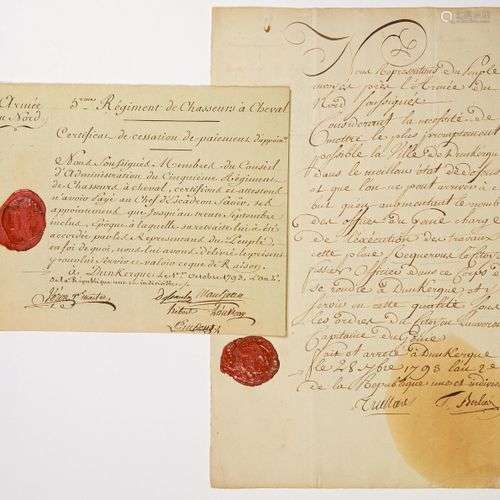 Armée
du Nord
5eme Régiment de Chasseurs à Cheval
Certificat de cessation de paiement d'appoint.
Nous soussignés Membres du Conseil
d'Administration du Cinquieme Régiment
de Chasseurs à cheval, certifions et attestons
n'avoir payé au Chef d'Escadron Savoir ses
appointemens que jusqu'au trente Septembre
inclus, Epoque à laquelle sa retraite lui a été
accordée par les Représentans du Peuple
en foi de quoi, nous lui avons délivré le présent
pour lui servir et valoir ce que de Raison,
à Dunkerque le 1er octobre 1793. L'an 2e.
de la République une et indivisible
Nous Représentans du peuple
envoiés près l'armée du
Nord soussignés
Considérant la necessité de
mettre le plus promptement
possible la Ville de Dunkerque
dans le meilleur état de défense
et que l'on ne peut arriver à ce
but qu'en augmentant le nombre
des officiers du genie chargés
de l'exécution des travaux de
cette place, Requerons le citoyen
passer officier dans ce corps
se rendre à Dunkerque et y
servir en cette qualité sous
les ordres du citoyen
Capitaine du Génie
fait et arreté à Dunkerque
le 28 7bre 1793 l'an 2e
de la Republique une et indivisible
Trullard
T. Berlier